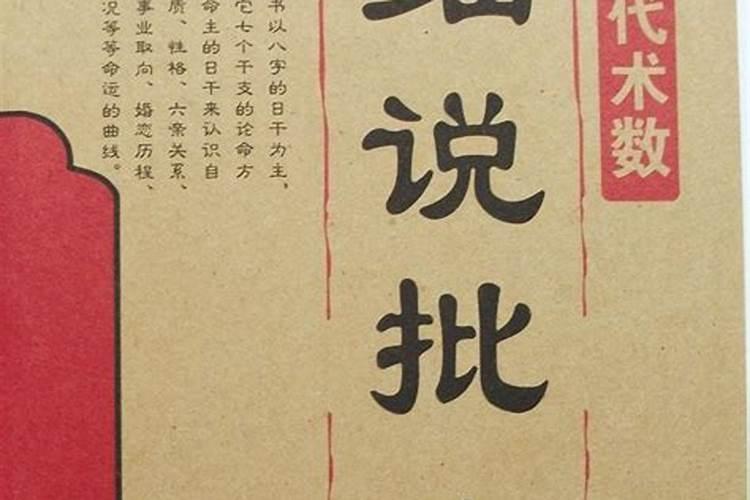 代术数
说批
书以八字的日干为主，
它七个干支的论命方
命主的日干来认识自
质、性格、六亲关系、
事业取向、婚恋历程、
况等等命运的曲线。